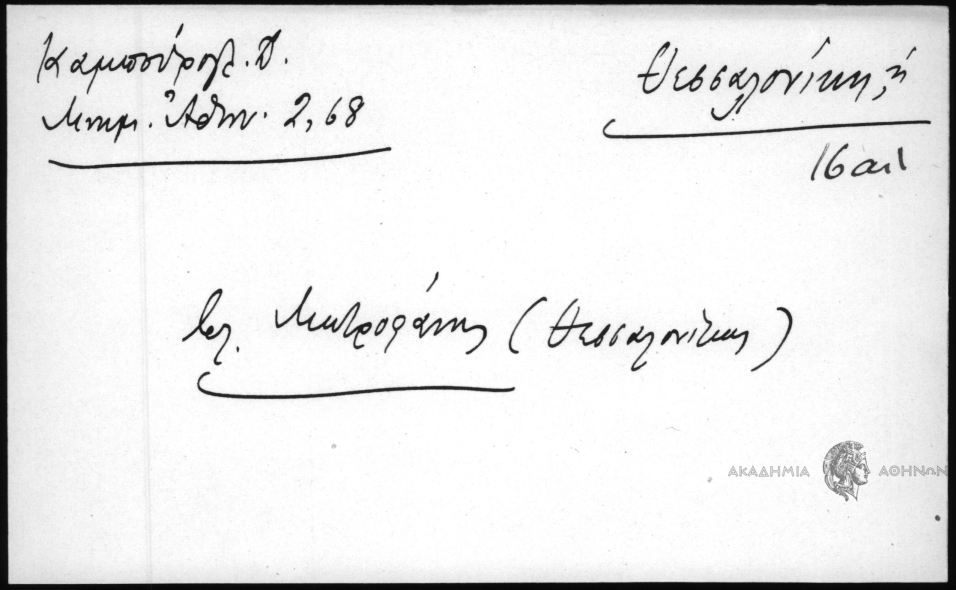 Καμπούρογλ. Δ.
Μνημ. Ἀθην. 2, 68
Θεσσαλονίκη, ἡ
16 αἰ
βλ. Μητροφάνης (Θεσσαλονίκης)
ΑΚΑΔΗΜΙΑ ΑΘΗΝΩΝ